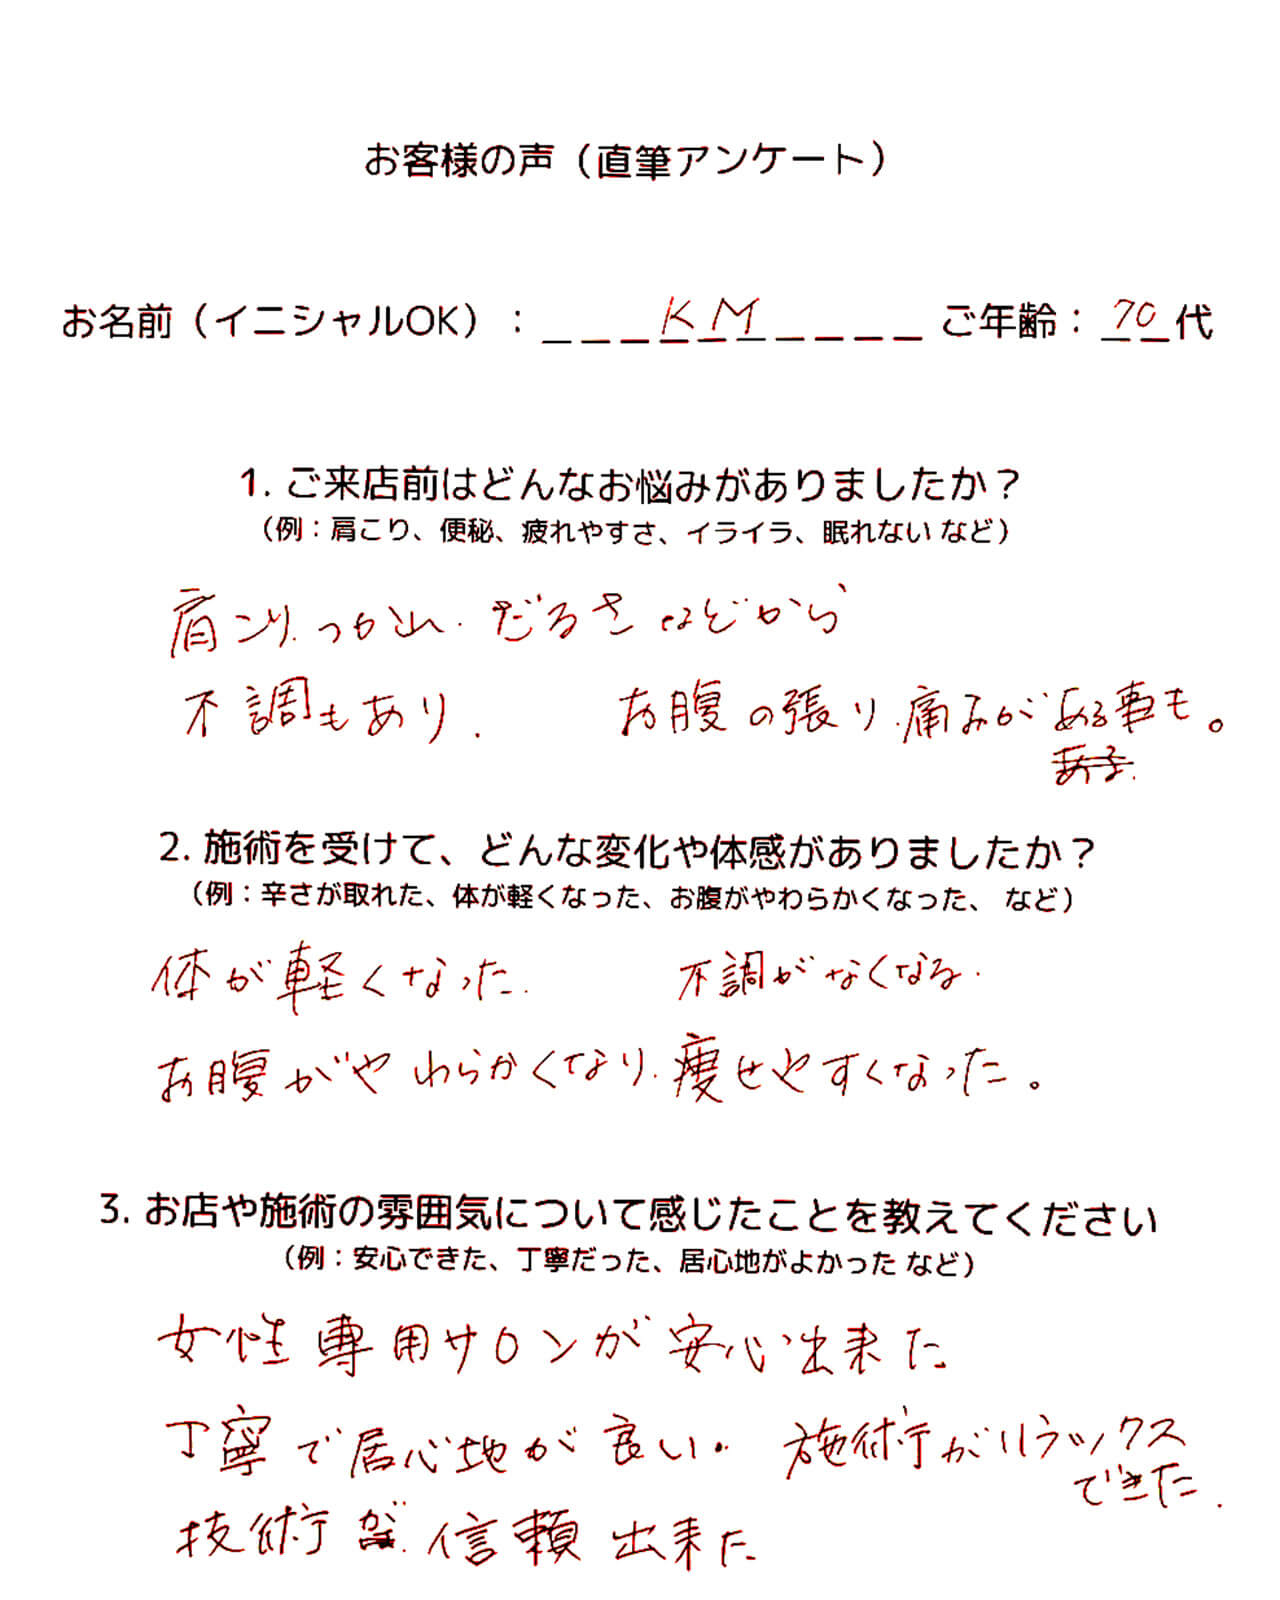 お客様の声（直筆アンケート）
お名前（イニシャルOK）：＿＿＿KM＿＿＿＿ ご年齢：70代
1. ご来店前はどんなお悩みがありましたか？
（例：肩こり、便秘、疲れやすさ、イライラ、眠れない など）
肩コリ. つかれ. だるさ などから
不調もあり. お腹の張り. 痛みがある事も。
ある.
2. 施術を受けて、どんな変化や体感がありましたか？
（例：辛さが取れた、体が軽くなった、お腹がやわらかくなった、 など）
体が軽くなった. 不調がなくなる.
お腹がやわらかくなり. 痩せやすくなった。
3. お店や施術の雰囲気について感じたことを教えてください
（例：安心できた、丁寧だった、居心地がよかった など）
女性専用サロンが安心出来た
丁寧で居心地が良い. 施術がリラックス
できた.
技術が. 信頼出来た